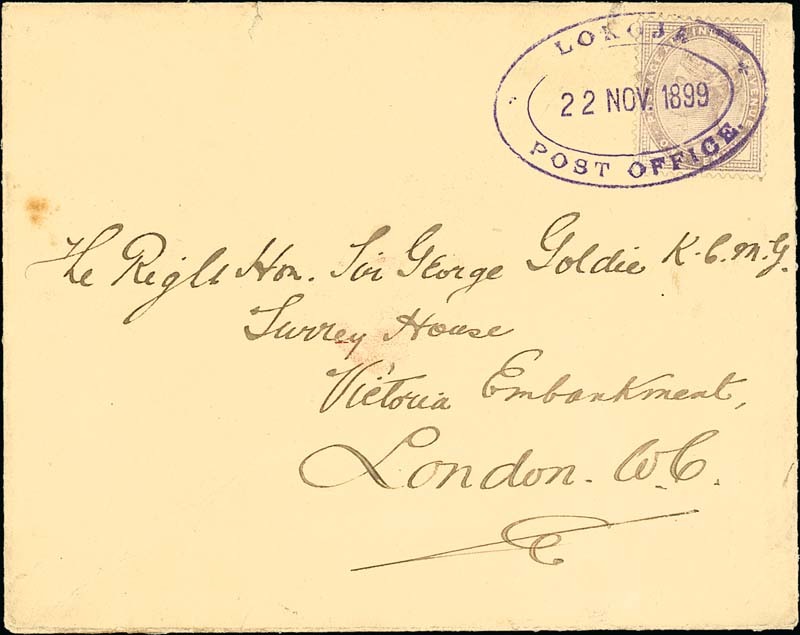 LOKOJA
22 NOV. 1899
POST OFFICE.
POSTAGE & INLAND REVENUE
The Right Hon. Sir George Goldie K.C.M.G.
Surrey House
Victoria Embankment,
London. W.C.